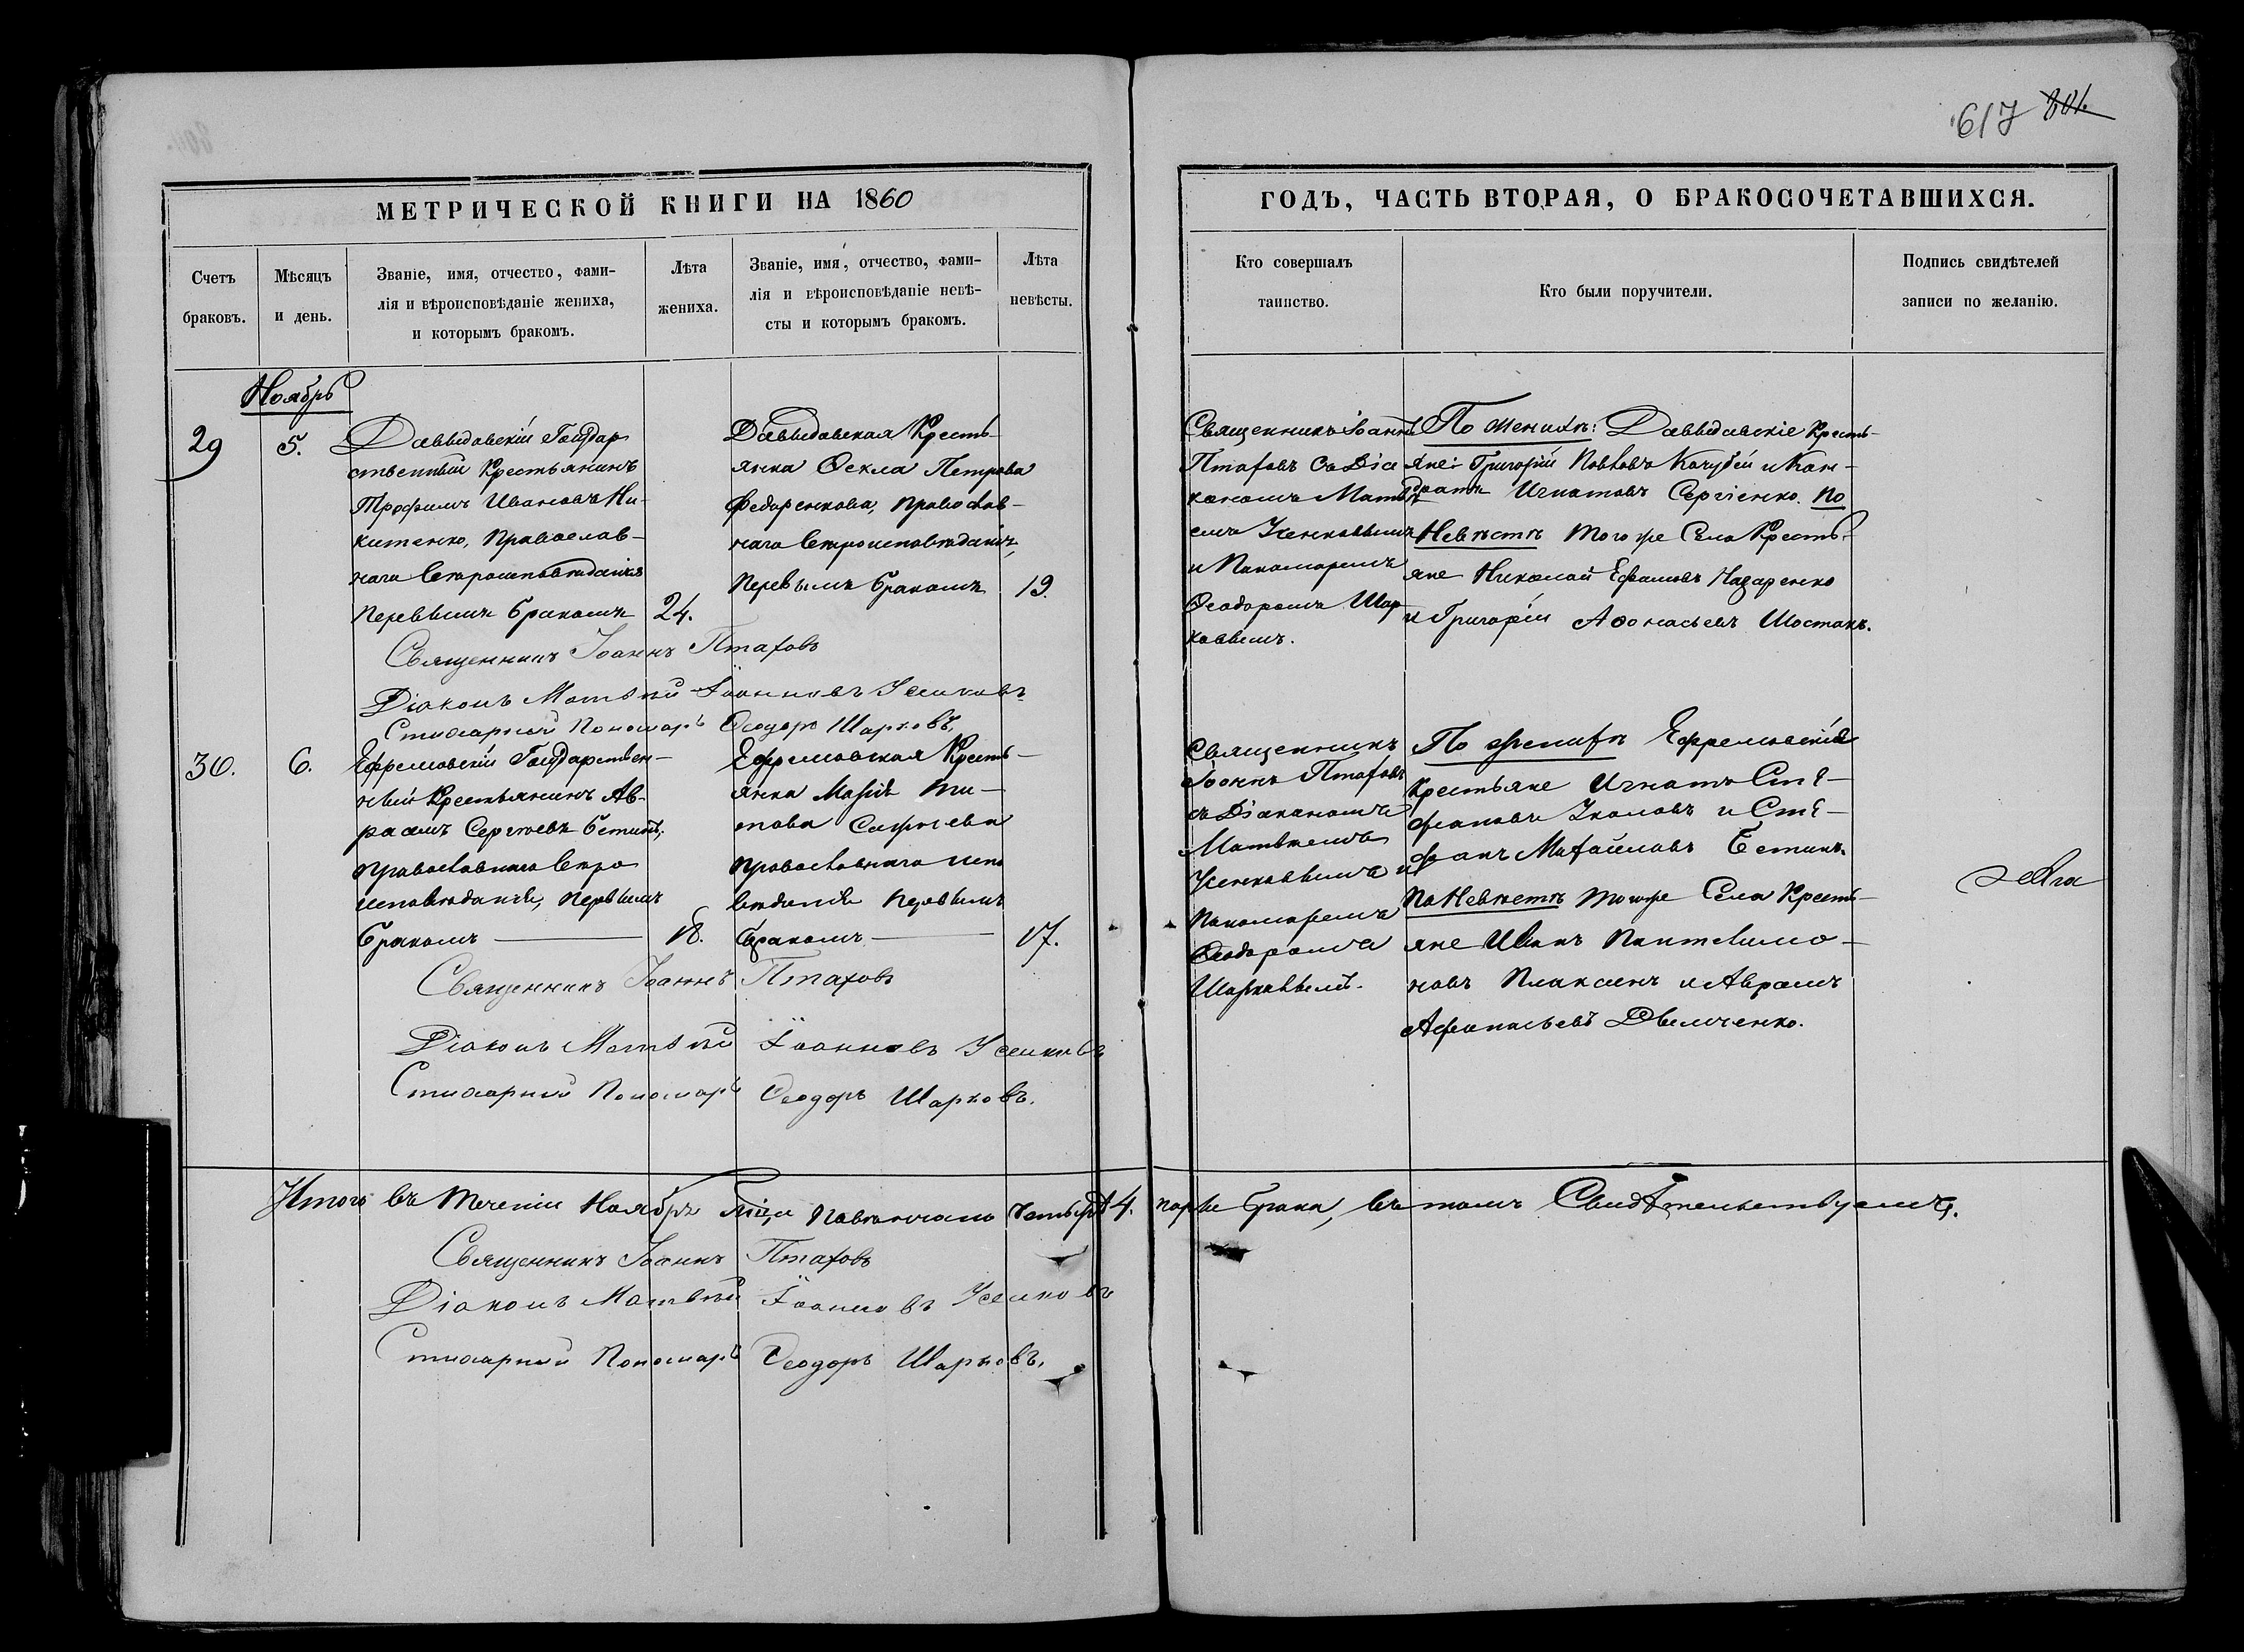 617 801.
МЕТРИЧЕСКОЙ КНИГИ НА 1860
ГОДЪ, ЧАСТЬ ВТОРАЯ, О БРАКОСОЧЕТАВШИХСЯ.
Счетъ
браковъ.
Мѣсяцъ
и день.
Званіе, имя, отчество, фами-
лія и вѣроисповѣданіе жениха,
и которымъ бракомъ.
Лѣта
жениха.
Званіе, имя, отчество, фами-
лія и вѣроисповѣданіе невѣ-
сты и которымъ бракомъ.
Лѣта
невѣсты.
Кто совершалъ
таинство.
Кто были поручители.
Подпись свидѣтелей
записи по желанію.
Ноябрь
29
5.
Давыдовскій Государ
ственный Крестьянинъ
Трофимъ Ивановъ Ни-
китенко, Православ-
наго Вѣроисповѣданія
Первымъ бракомъ
24.
Давыдовская Кресть-
янка Ѳекла Петрова
Федоренкова, Православ-
наго Вѣроисповѣданія,
Первымъ бракомъ
19.
Священникъ Іоаннъ
Птаховъ съ Діа
кономъ Матвѣ
емъ Усенковымъ
и Пономаремъ
Ѳеодоромъ Шар
ковымъ.
По Женихѣ: Давыдовскіе Кресть-
яне: Григорій Павловъ Кочубей и Кон-
дратъ Игнатовъ Сергіенко. По
Невѣстѣ Того же Села Кресть-
яне Николай Ефимовъ Назаренко
и Григорій Аѳонасьевъ Шостакъ.
Священникъ Іоаннъ Птаховъ
Діаконъ Матвѣй Іоанновъ Усенковъ
Стихарный Пономарь Ѳеодоръ Шарковъ.
30.
6.
Ефремовскій Государствен-
ный Крестьянинъ Ав-
раамъ Сергѣевъ Бетинъ,
Православнаго Вѣро
исповѣданія, Первымъ
бракомъ
18.
Ефремовская Кресть-
янка Марія Ти-
това
Православнаго испо
вѣданія Первымъ
бракомъ
17.
Священникъ
Іоаннъ Птаховъ
съ Діакономъ
Матвѣемъ
Усенковымъ и
Пономаремъ
Ѳеодоромъ
Шарковымъ.
По женихѣ Ефремовскіе
Крестьяне Игнатъ Сте-
фановъ и Сте-
фанъ Михайловъ Бетинъ.
По Невѣстѣ Того же Села Кресть-
яне Иванъ Пантелимо-
новъ Плаксинъ и Аврамъ
Афанасьевъ
Священникъ Іоаннъ Птаховъ
Діаконъ Матвѣй Іоанновъ Усенковъ
Стихарный Пономарь Ѳеодоръ Шарковъ.
Итого въ теченіи Ноября мѣсяца Повѣнчано четыре 4. пары брака, въ томъ Свидѣтельствуемъ.
Священникъ Іоаннъ Птаховъ
Діаконъ Матвѣй Іоанновъ Усенковъ
Стихарный Пономарь Ѳеодоръ Шарковъ.